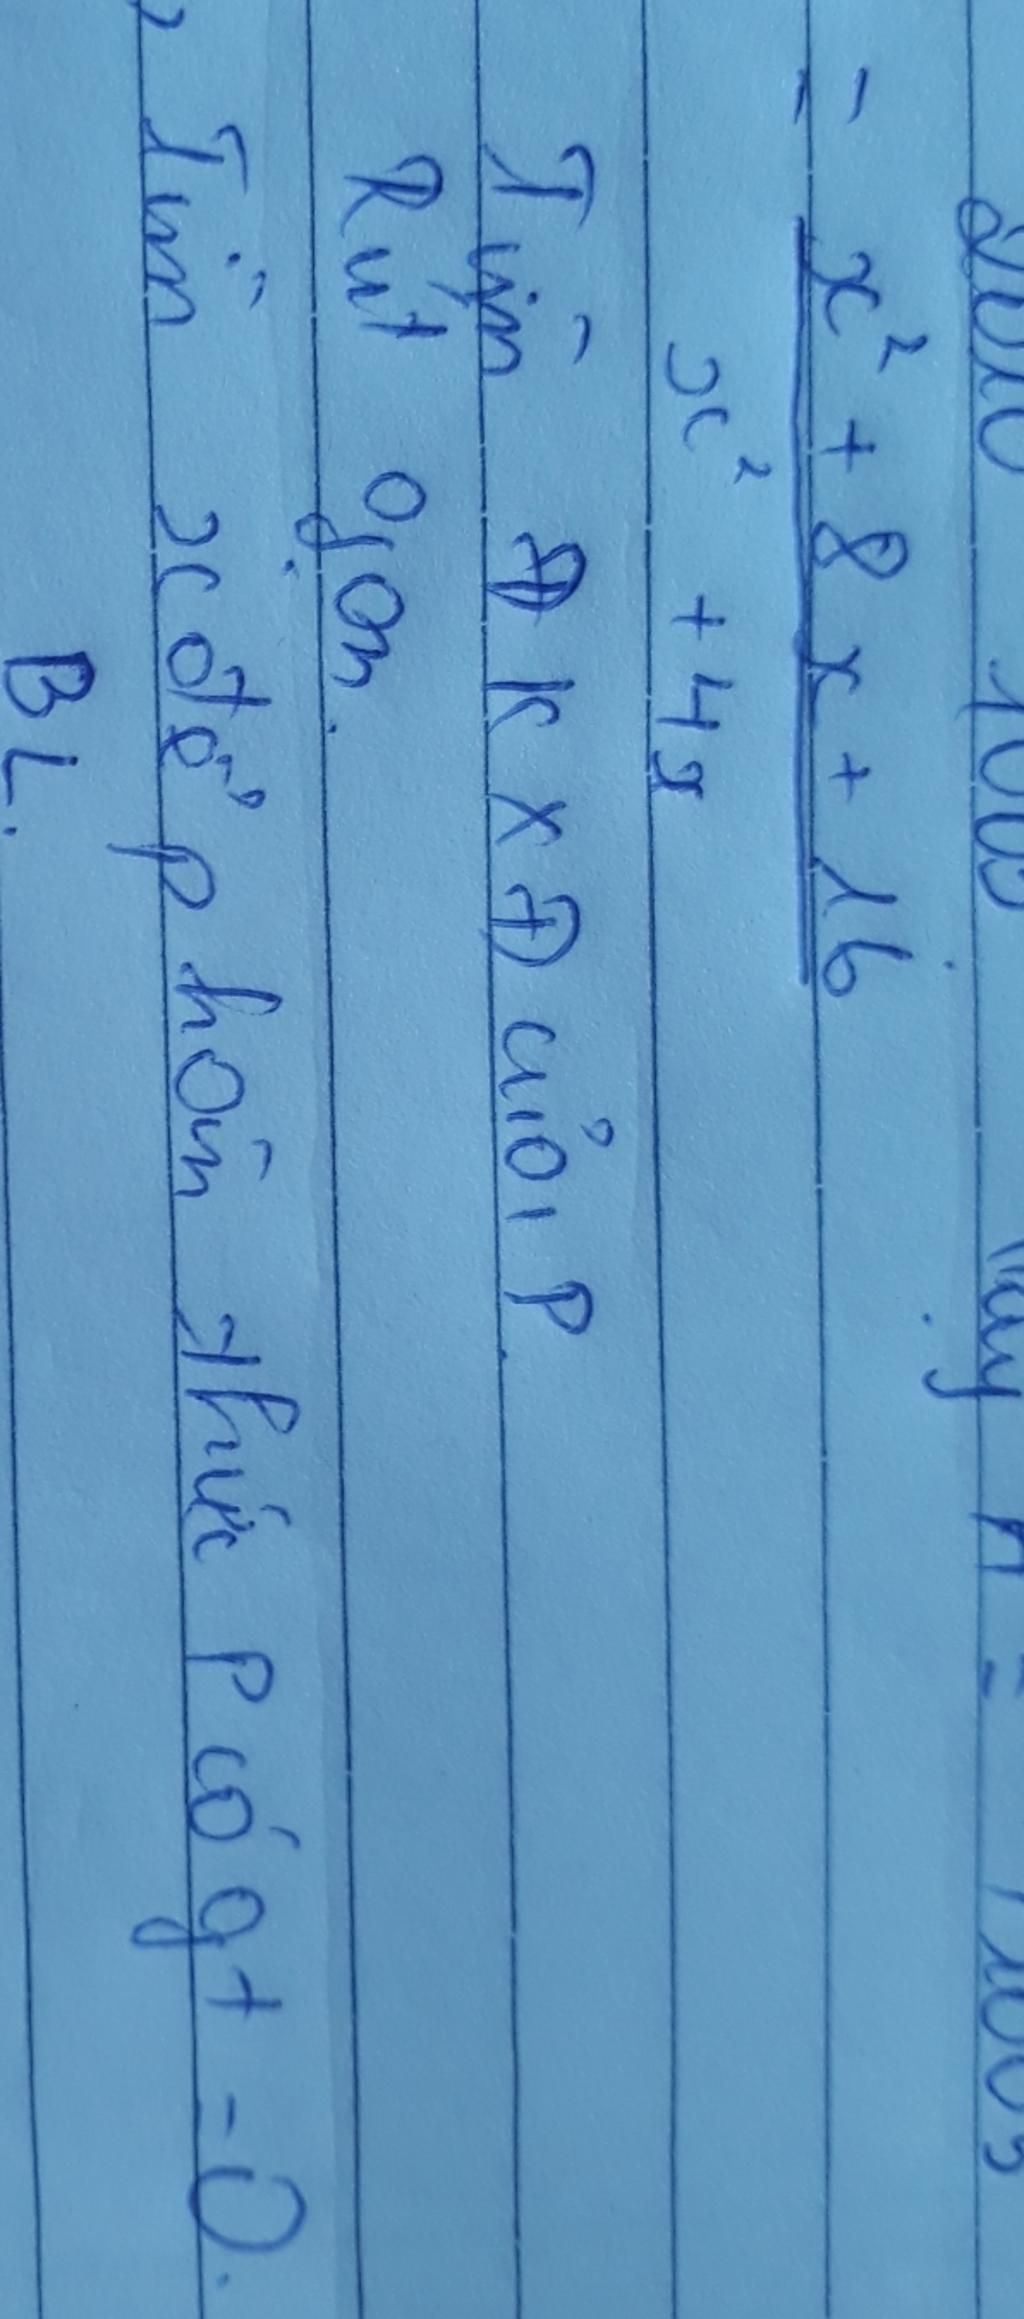 = x² + 8x + 16
x² + 4x
Tìm ĐKXĐ của P
Rút gọn.
Tìm x để phân thức P có gt = 0.
BL.